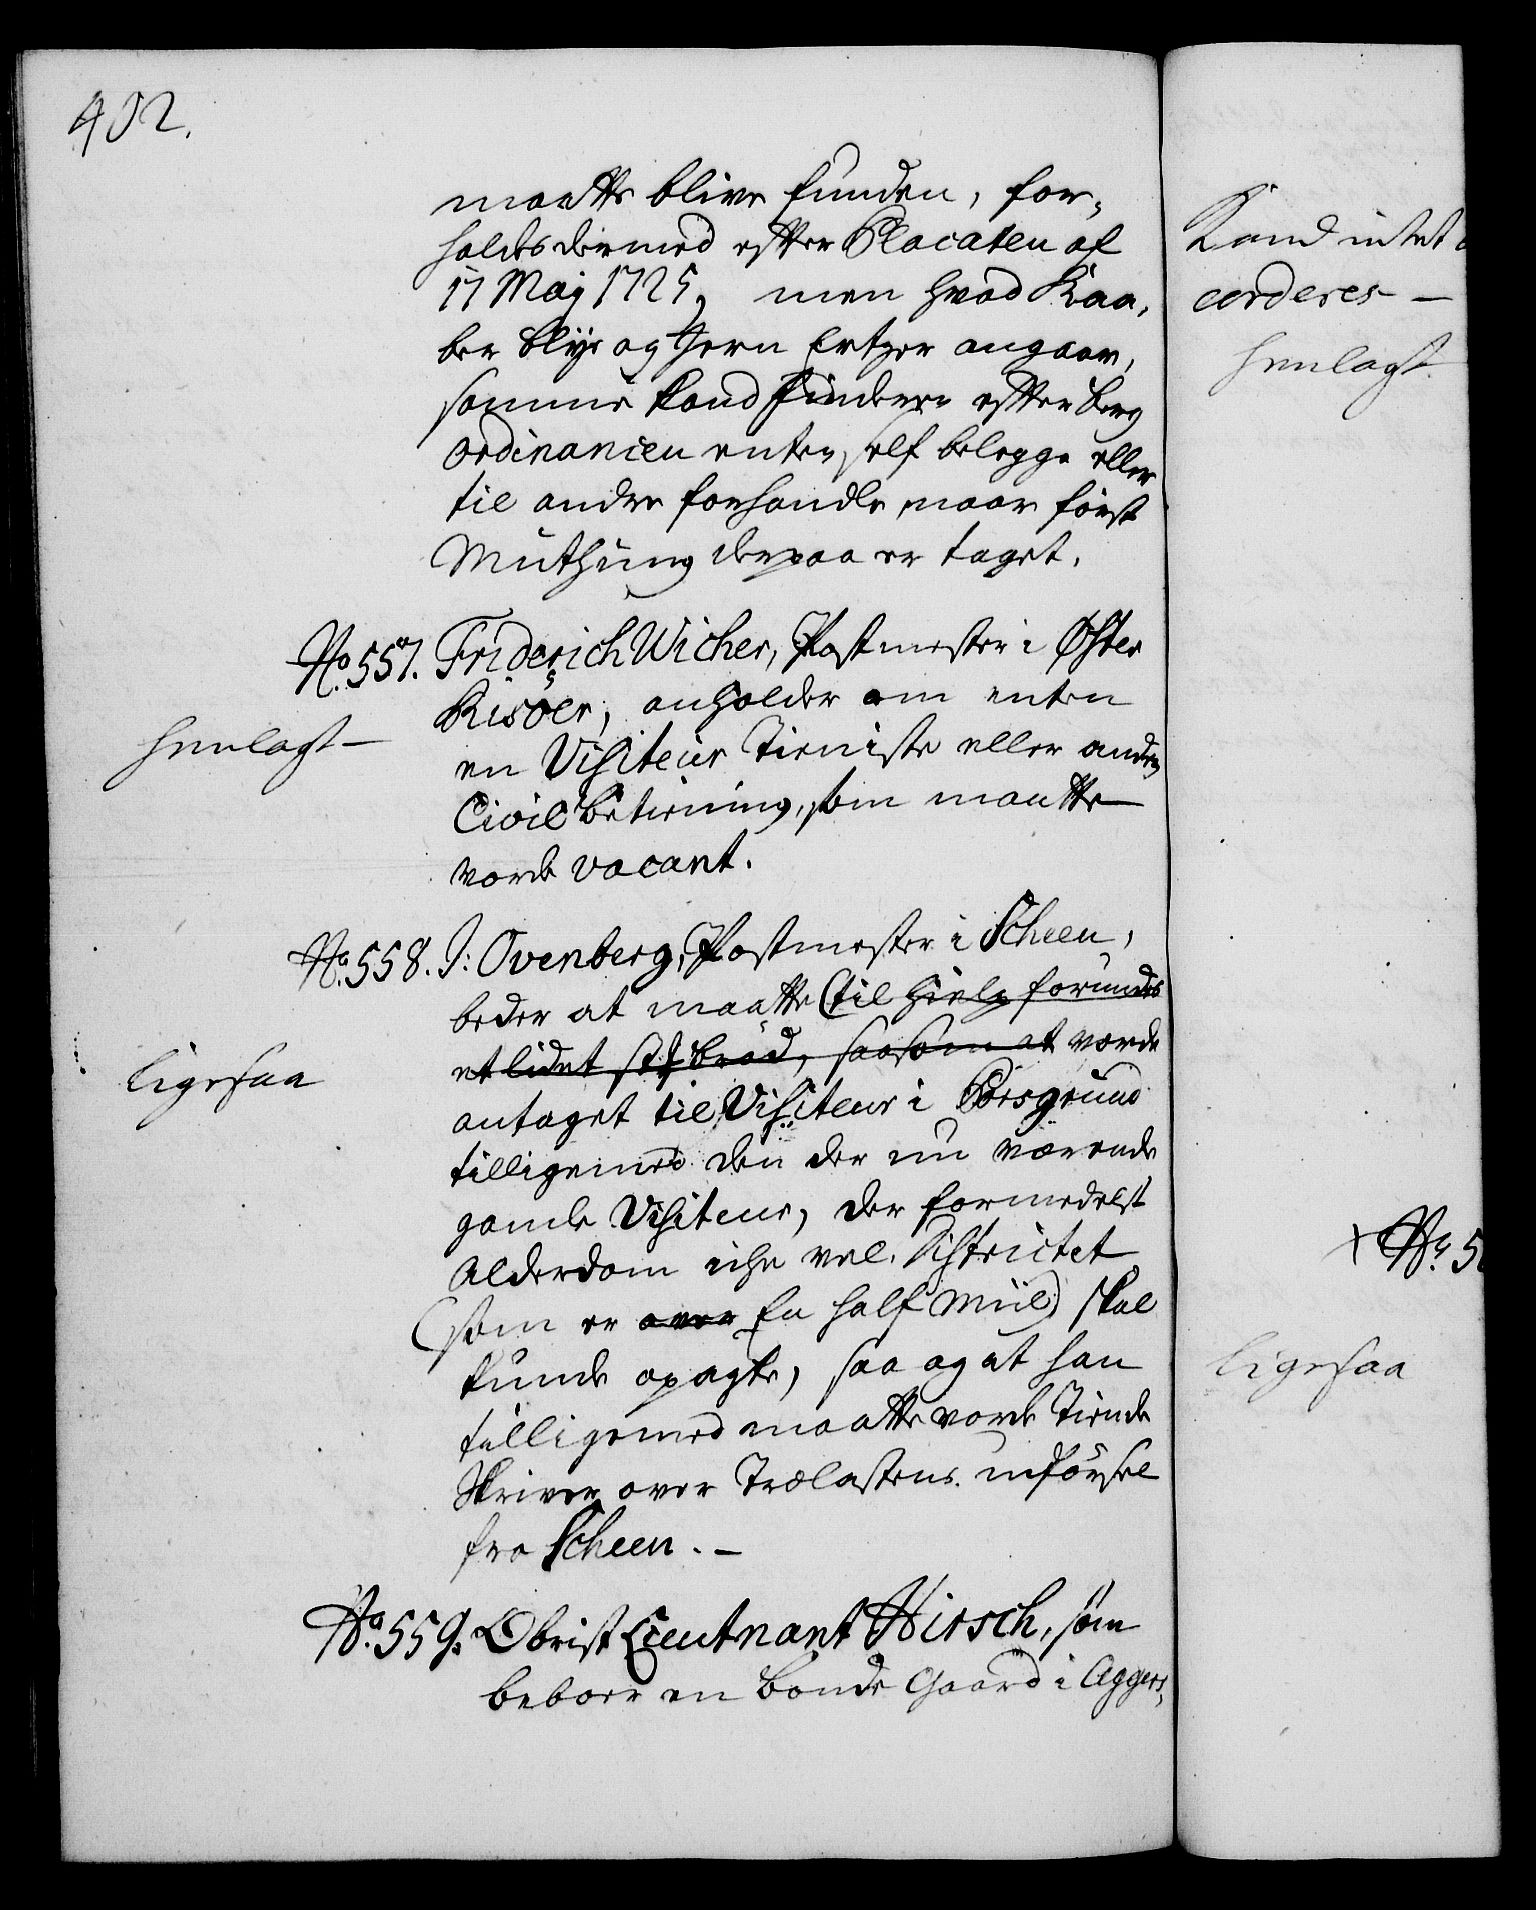 402.
maatte blive funden, for-
holdes dermed efter Placaten af
17 Maj 1725, men hvad Kaa-
ber blye og Jern Ertzer angaar,
samme kand Finderne efter berg
ordinancen enten self belegge eller
til andre forhandle, naar først
Muthung derpaa er taget.
No. 557. Friderich Wicher, Postmester i Øster
Risöer, anholder om enten
henlagt -
en Visiteur Tieniste eller anden
Civil betiening, som maatte
vorde vacant.
No. 558. J: Ovenberg, Postmester i Scheen,
beder at maatte (til hielp forundes
et lidet st: brød, saasom at vorde
ligesaa
antaget til Visiteur i Porsgrund
tilligemed den der nu værende
gamle Visiteur, der formedelst
Alderdom iche vel Districtet
(som er over En half Miil) skal
kunde opagte, saa og at han
tilligemed maatte vorde Tiende
Skriver over Trælastens udførsel
fra Scheen. -
No. 559. Obrist Lieutnant Hirsch, som
beboer en bonde Gaard i Aggers-
Kand intet
corderes -
henlagt
No. 5
ligesaa